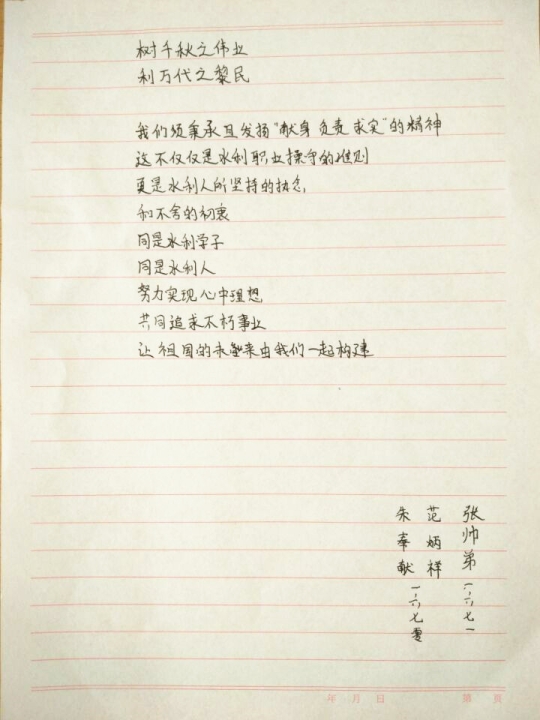 树千秋之伟业
利万代之黎民
我们须秉承且发扬“献身 负责 求实”的精神
这不仅仅是水利职业操守的准则
更是水利人所坚持的执念
和不舍的初衷
同是水利学子
同是水利人
努力实现心中理想
共同追求不朽事业
让祖国的未来由我们一起构建
张帅弟 一六七一
范炳祥
朱奉献 一六七零
年 月 日 第 页